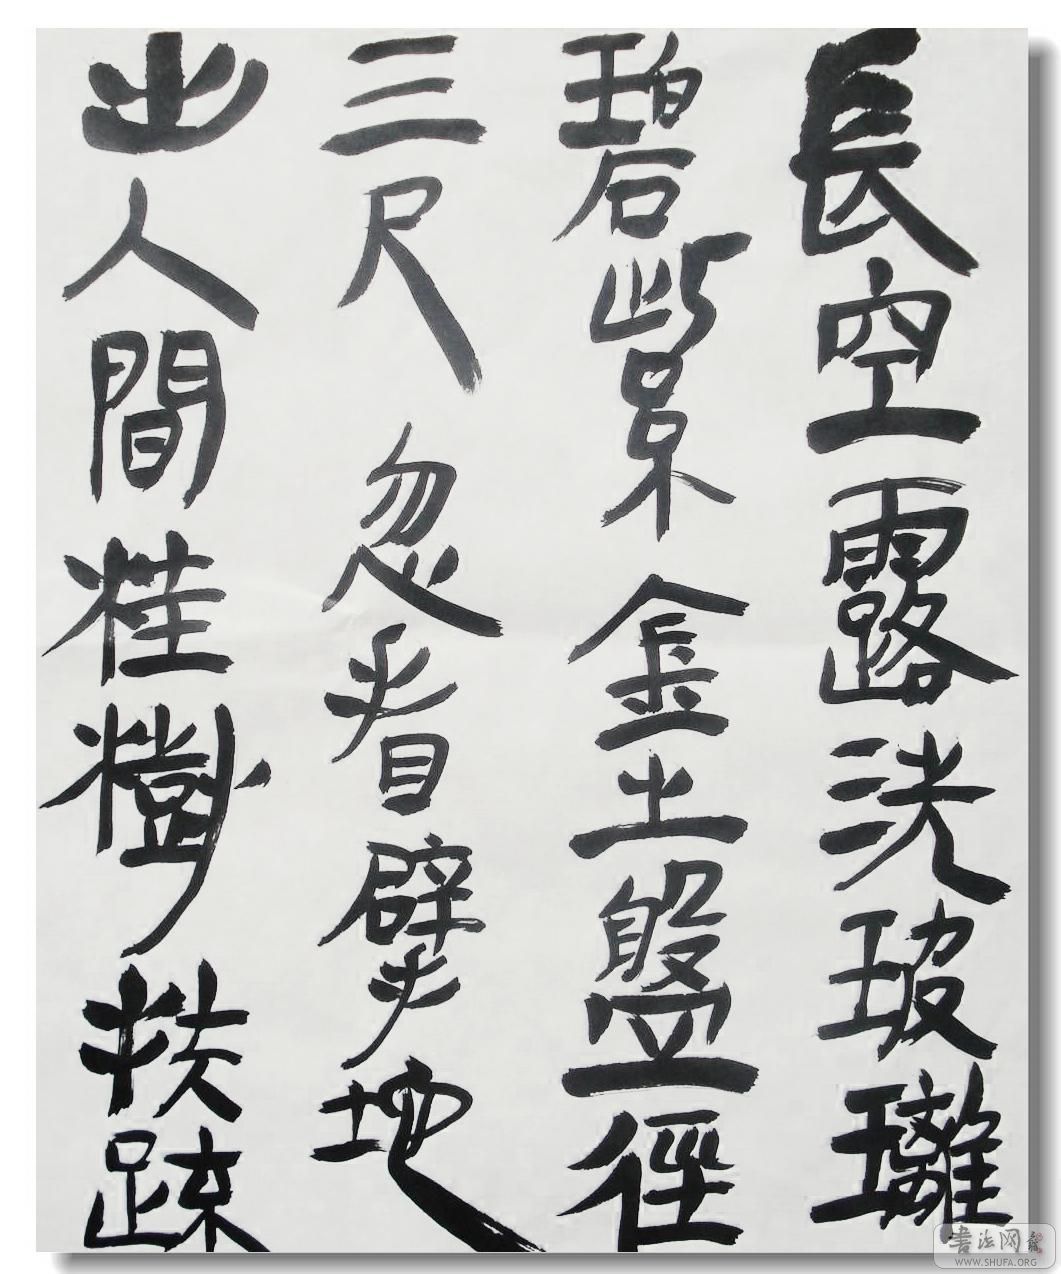 長空露洗玻璃
碧紫金之盤徑
三尺忽看擘地
出人間桂樹扶疎
書法网
WWW.SHUFA.ORG